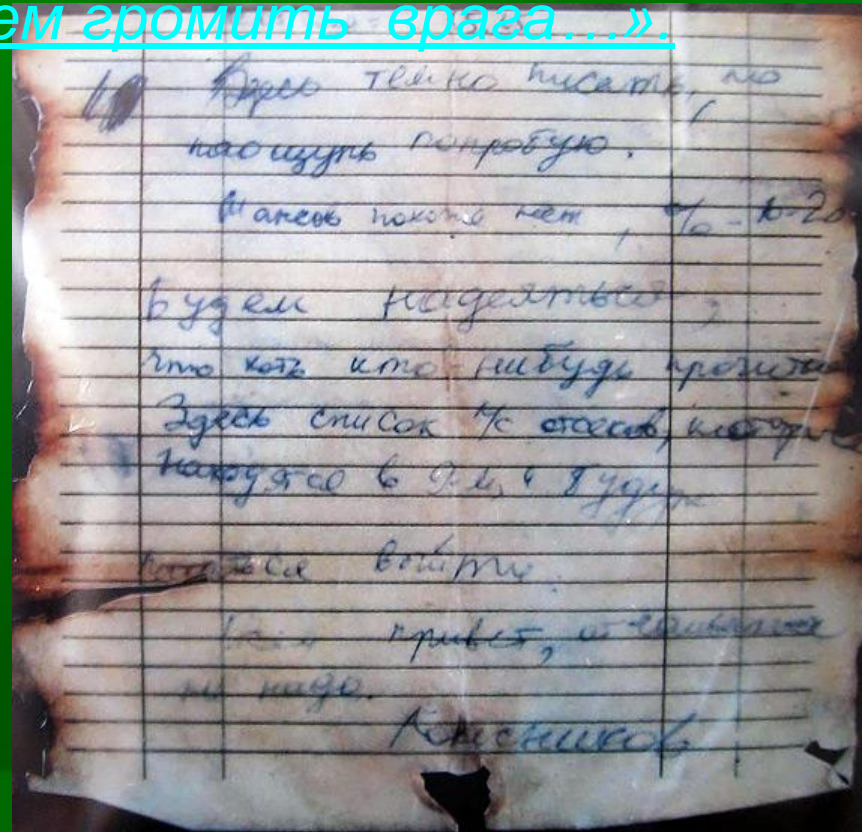 ем громить врага…».
Здесь темно писать, но
наощупь попробую.
Шансов похоже нет, % - 10-20
Будем надеяться,
что хоть кто-нибудь прочитае
Здесь список л/с отсеков, которые
находятся в 9-м и будут
пытаться выйти.
Всем привет, отчаиваться
не надо.
Колесников